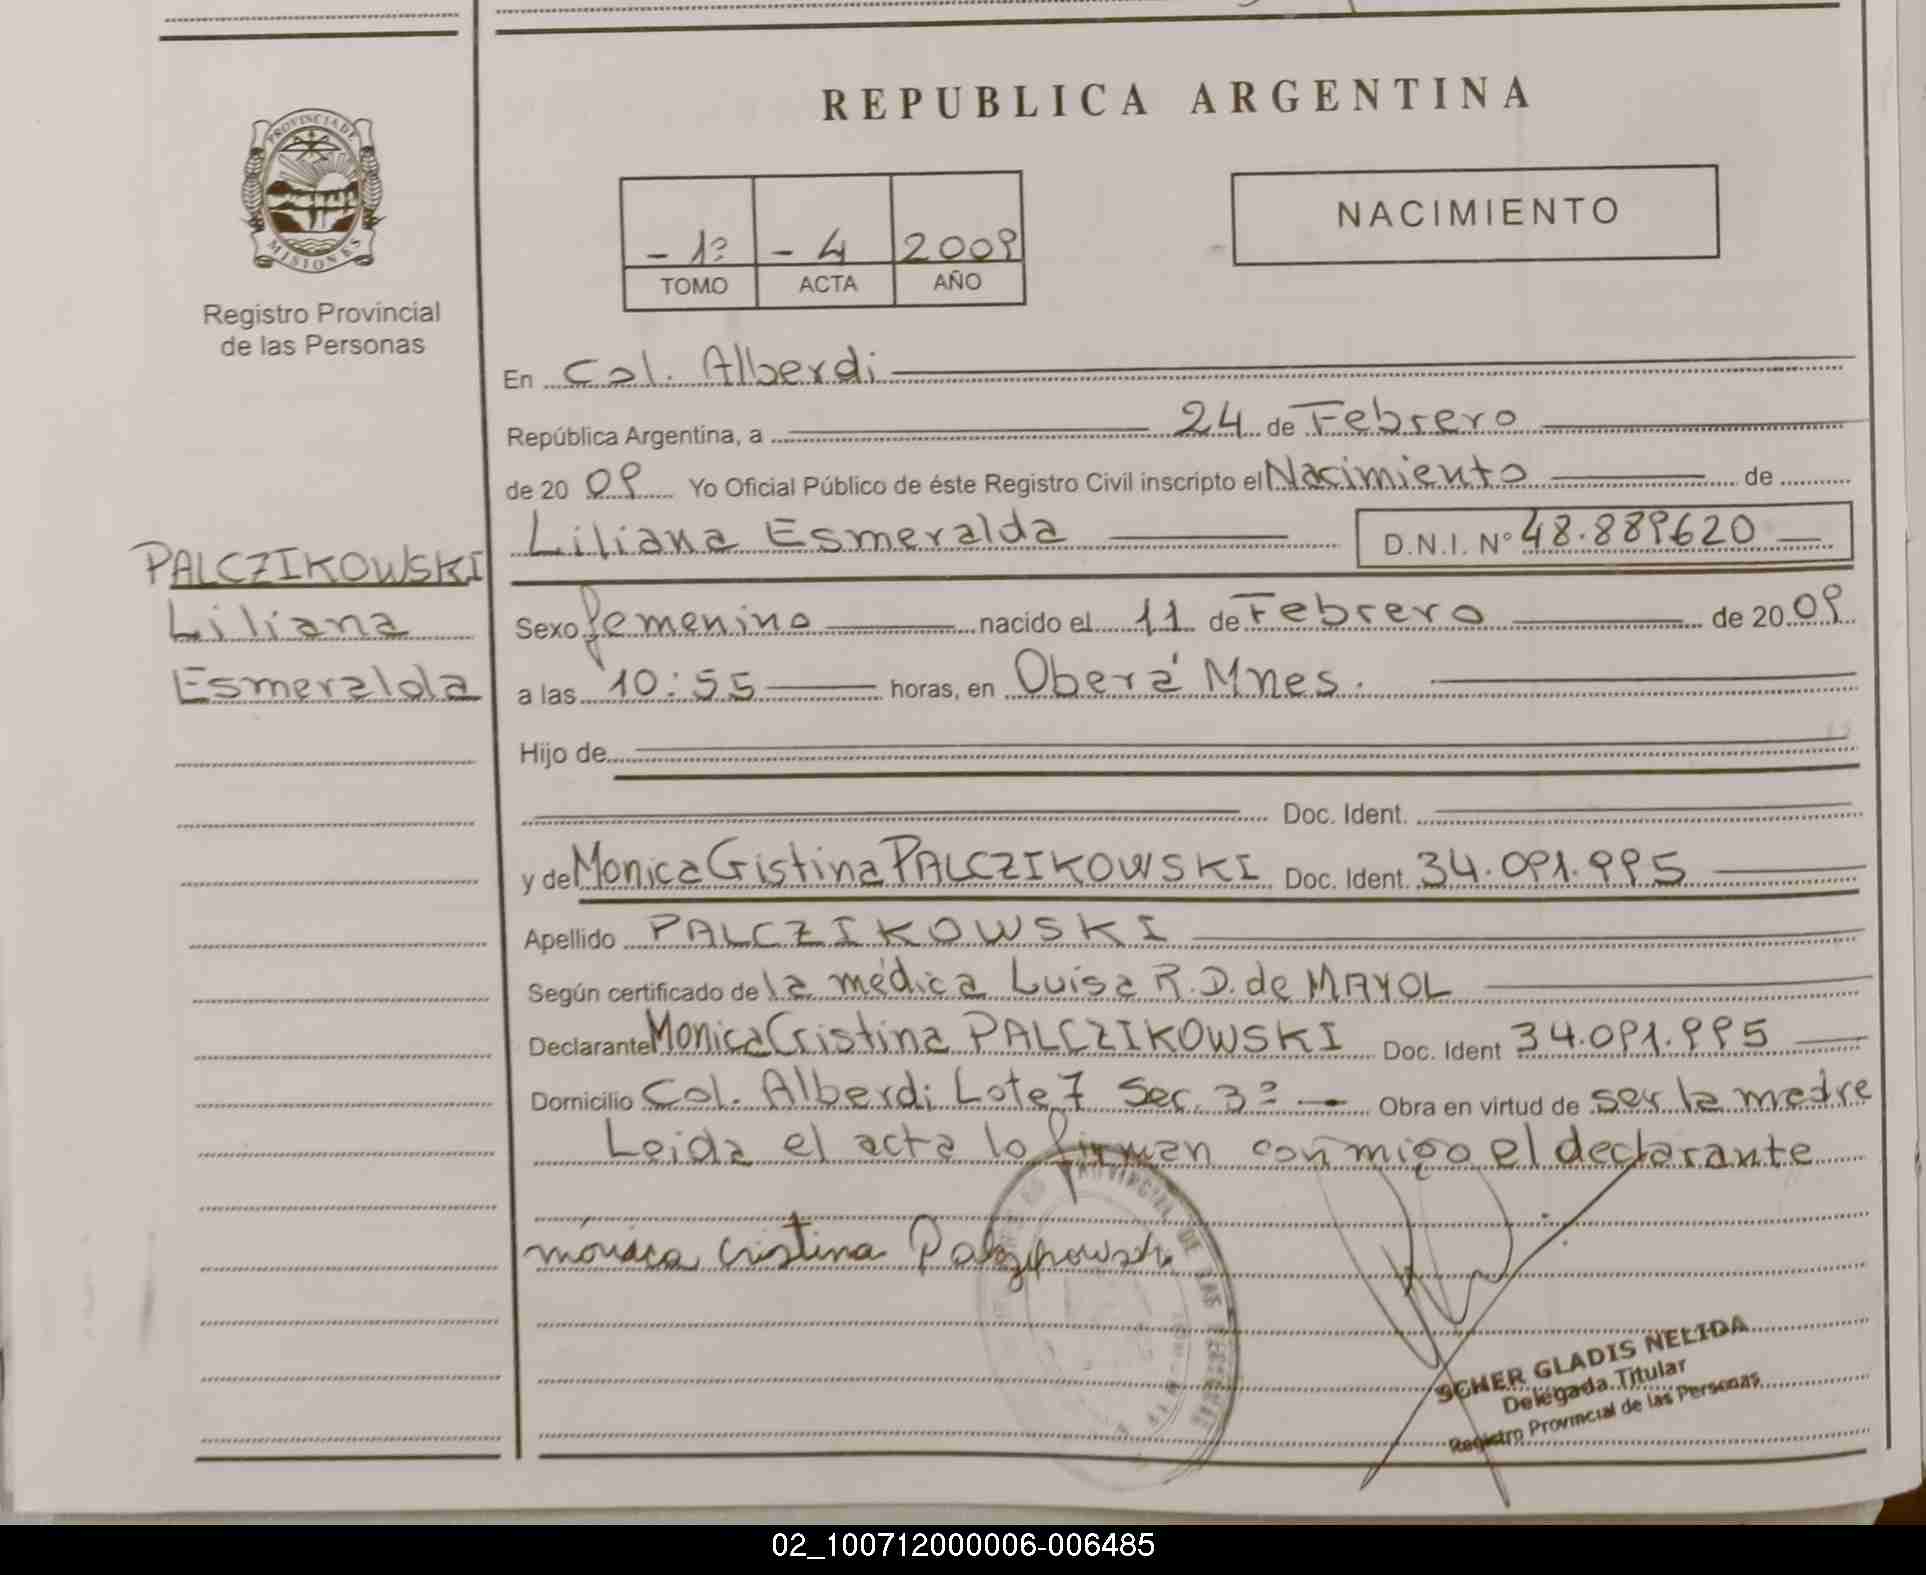 REPUBLICA ARGENTINA
PROVINCIA DE
MISIONES
Registro Provincial
de las Personas
NACIMIENTO
- 1º - 4 2009
TOMO ACTA AÑO
En Col. Alberdi
República Argentina, a 24 de Febrero
de 20 09 Yo Oficial Público de éste Registro Civil inscripto el Nacimiento de
Liliana Esmeralda D.N.I. Nº 48.889620
PALCZIKOWSKI
Liliana
Esmeralda
Sexo femenino nacido el 11 de Febrero de 20 09
a las 10:55 horas, en Oberá Mnes.
Hijo de
Doc. Ident.
y de Monica Cristina PALCZIKOWSKI Doc. Ident. 34.091.995
Apellido PALCZIKOWSKI
Según certificado de la médica Luisa R.D. de MAYOL
Declarante Monica Cristina PALCZIKOWSKI Doc. Ident 34.091.995
Domicilio Col. Alberdi Lote 7 Sec. 3ª - Obra en virtud de ser la madre
Leida el acta lo firman conmigo el declarante
mónica cristina
PROVINCIAL DE LAS
SCHER GLADIS NELIDA
Delegada Titular
Registro Provincial de las Personas
02_100712000006-006485